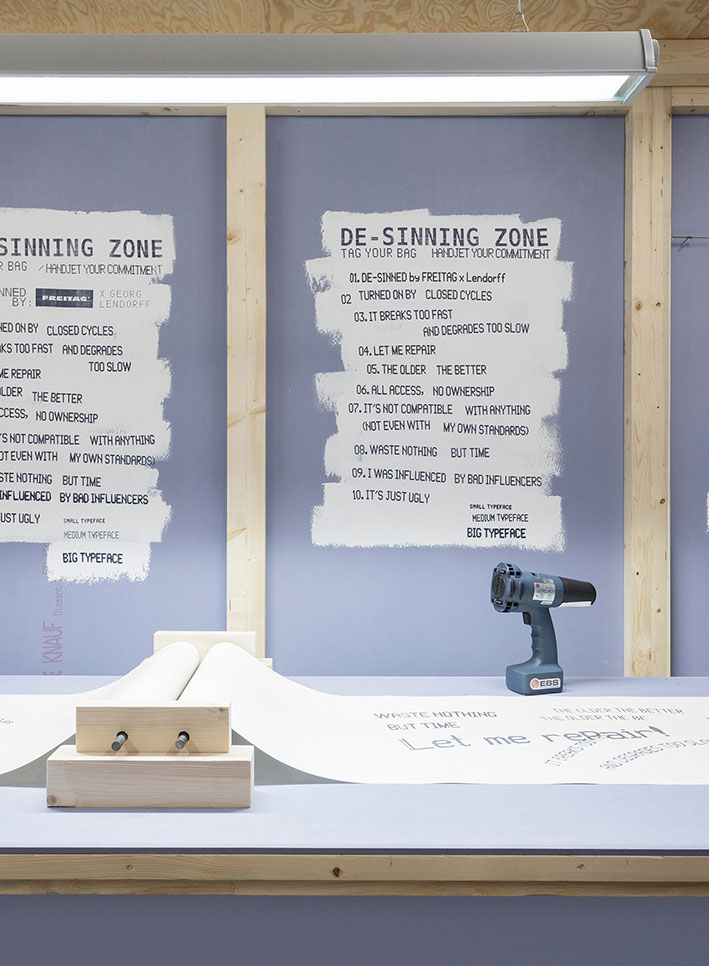 SINNING ZONE
BAG / HANDJET YOUR COMMITMENT
BY: FREITAG X GEORG
LENDORFF
ON BY CLOSED CYCLES
TOO FAST AND DEGRADES
TOO SLOW
ME REPAIR
THE BETTER
NO OWNERSHIP
NOT COMPATIBLE WITH ANYTHING
EVEN WITH MY OWN STANDARDS)
NOTHING BUT TIME
INFLUENCED BY BAD INFLUENCERS
JUST UGLY
SMALL TYPEFACE
MEDIUM TYPEFACE
BIG TYPEFACE
KNAUF Diamant
DE-SINNING ZONE
TAG YOUR BAG HANDJET YOUR COMMITMENT
01. DE-SINNED by FREITAG x Lendorff
02 TURNED ON BY CLOSED CYCLES
03. IT BREAKS TOO FAST
AND DEGRADES TOO SLOW
04. LET ME REPAIR
05. THE OLDER THE BETTER
06. ALL ACCESS, NO OWNERSHIP
07. IT'S NOT COMPATIBLE WITH ANYTHING
(NOT EVEN WITH MY OWN STANDARDS)
08. WASTE NOTHING BUT TIME
09. I WAS INFLUENCED BY BAD INFLUENCERS
10. IT'S JUST UGLY
SMALL TYPEFACE
MEDIUM TYPEFACE
BIG TYPEFACE
EBS
WASTE NOTHING
BUT TIME
THE OLDER THE BETTER
THE OLDER THE BE
Let me repair!
IT BREAKS TOO
AND DEGRADES TOO SLO